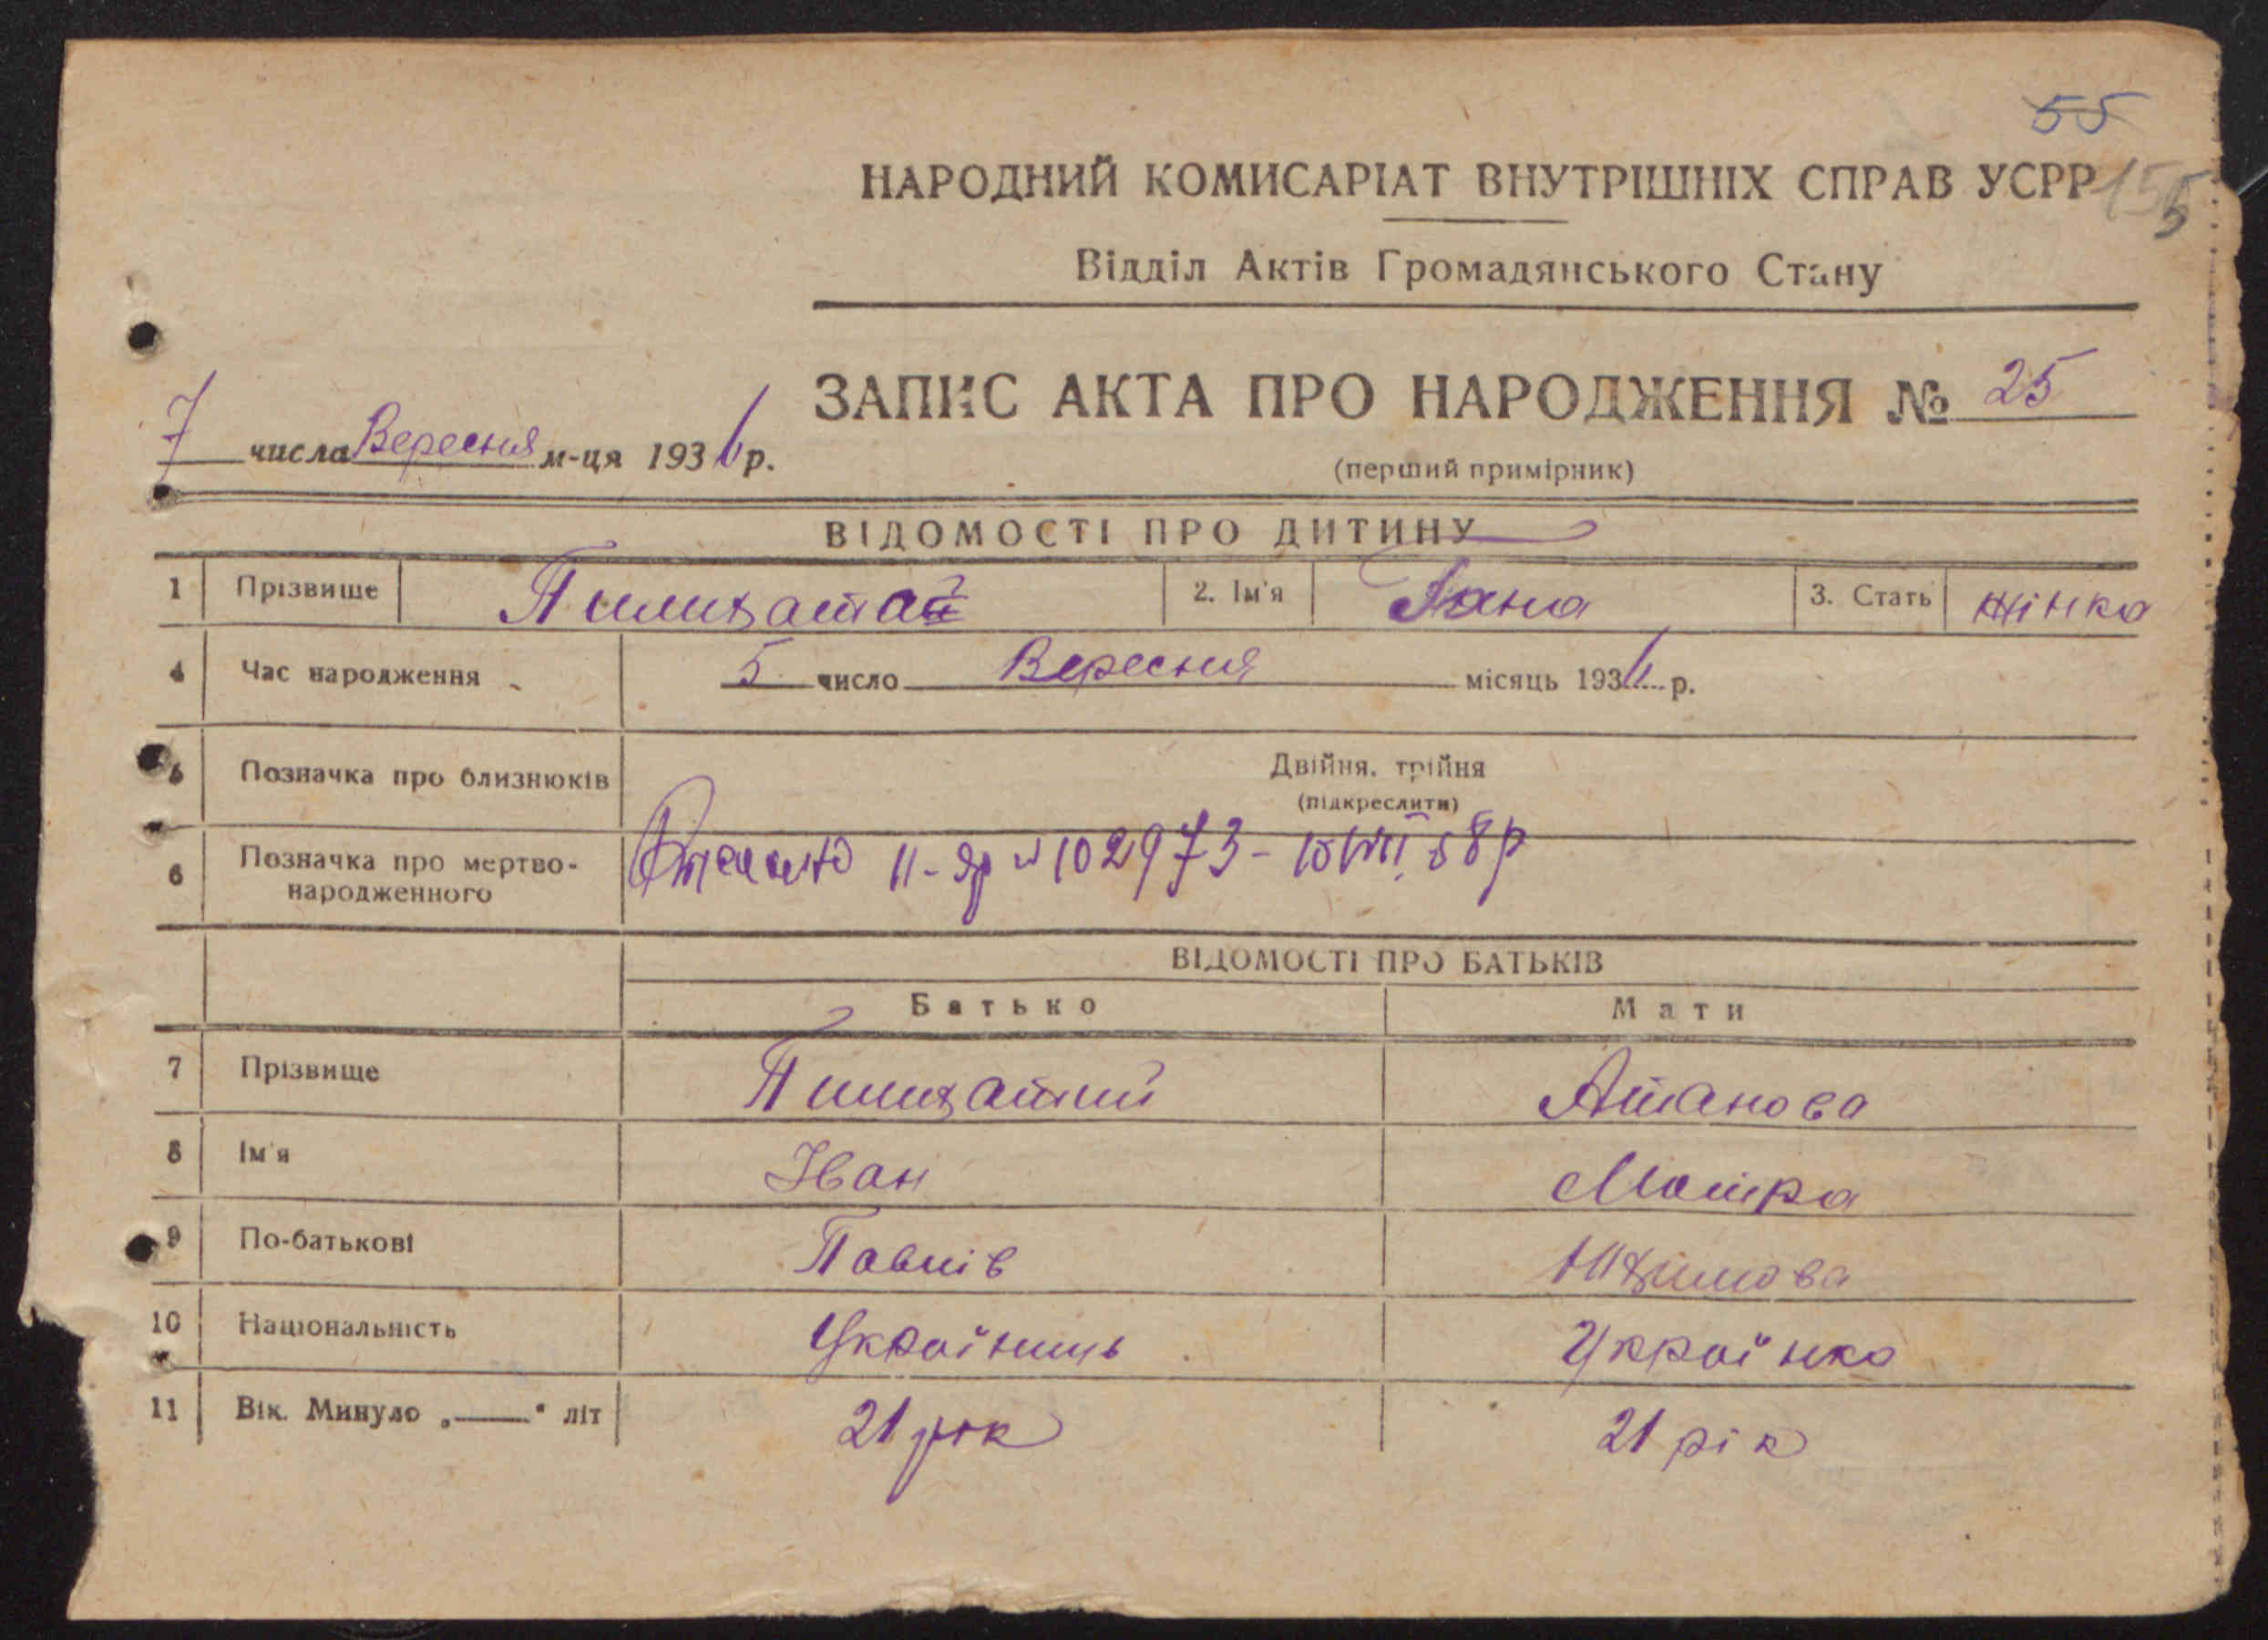 55
НАРОДНИЙ КОМИСАРІАТ ВНУТРІШНІХ СПРАВ УСРР 155
Відділ Актів Громадянського Стану
ЗАПИС АКТА ПРО НАРОДЖЕННЯ № 25
7 числа Вересня м-ця 1936 р.
(перший примірник)
ВІДОМОСТІ ПРО ДИТИНУ
1 Прізвище 2. Ім'я 3. Стать жінка
4 Час народження 5 число Вересня місяць 1936 р.
5 Позначка про близнюків Двійня, трійня
(підкреслити)
6 Позначка про мертво-
народженного
102973
ВІДОМОСТІ ПРО БАТЬКІВ
Батько Мати
7 Прізвище Атанова
8 Ім'я Іван Мотра
9 По-батькові Павлів
10 Національність Українець Українка
11 Вік. Минуло „——" літ 21 рік 21 рік